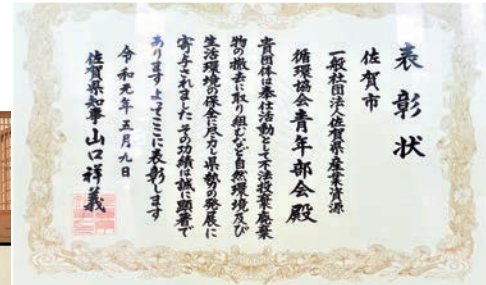 表彰状
佐賀市
一般社団法人佐賀県産業資源
循環協会青年部会殿
貴団体は奉仕活動として不法投棄廃棄
物の撤去に取り組むなど自然環境及び
生活環境の保全に尽力し県勢の発展に
寄与されました その功績は誠に顕著で
あります よってここに表彰します
令和元年五月九日
佐賀県知事 山口祥義